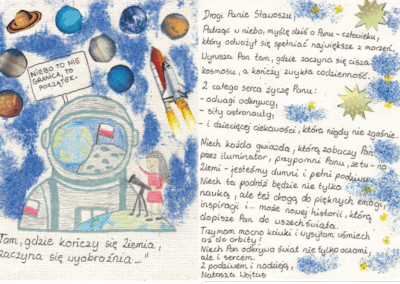 NIEBO TO NIE
GRANICA, TO
POCZĄTEK.
„Tam, gdzie kończy się Ziemia,
zaczyna się wyobraźnia..."
Drogi Panie Sławoszu!
Patrząc w niebo, myślę dziś o Panu - człowieku,
który odważył się spełniać największe z marzeń.
Wyrusza Pan tam, gdzie zaczyna się cisza
kosmosu, a kończy zwykła codzienność.
Z całego serca życzę Panu:
- odwagi odkrywcy,
- siły astronauty,
- i dziecięcej ciekawości, która nigdy nie zgaśnie.
Niech każda gwiazda, którą zobaczy Pan
przez iluminator, przypomni Panu, że tu - na
Ziemi - jesteśmy dumni i pełni podziwu.
Niech ta podróż będzie nie tylko
nauką, ale też drogą do pięknych emocji,
inspiracji i... może nowej historii, którą
dopisze Pan do wszechświata.
Trzymam mocno kciuki i wysyłam uśmiech
aż do orbity!
Niech Pan odkrywa świat nie tylko oczami,
ale i sercem.
Z podziwem i nadzieją,
Natasza Wojtas